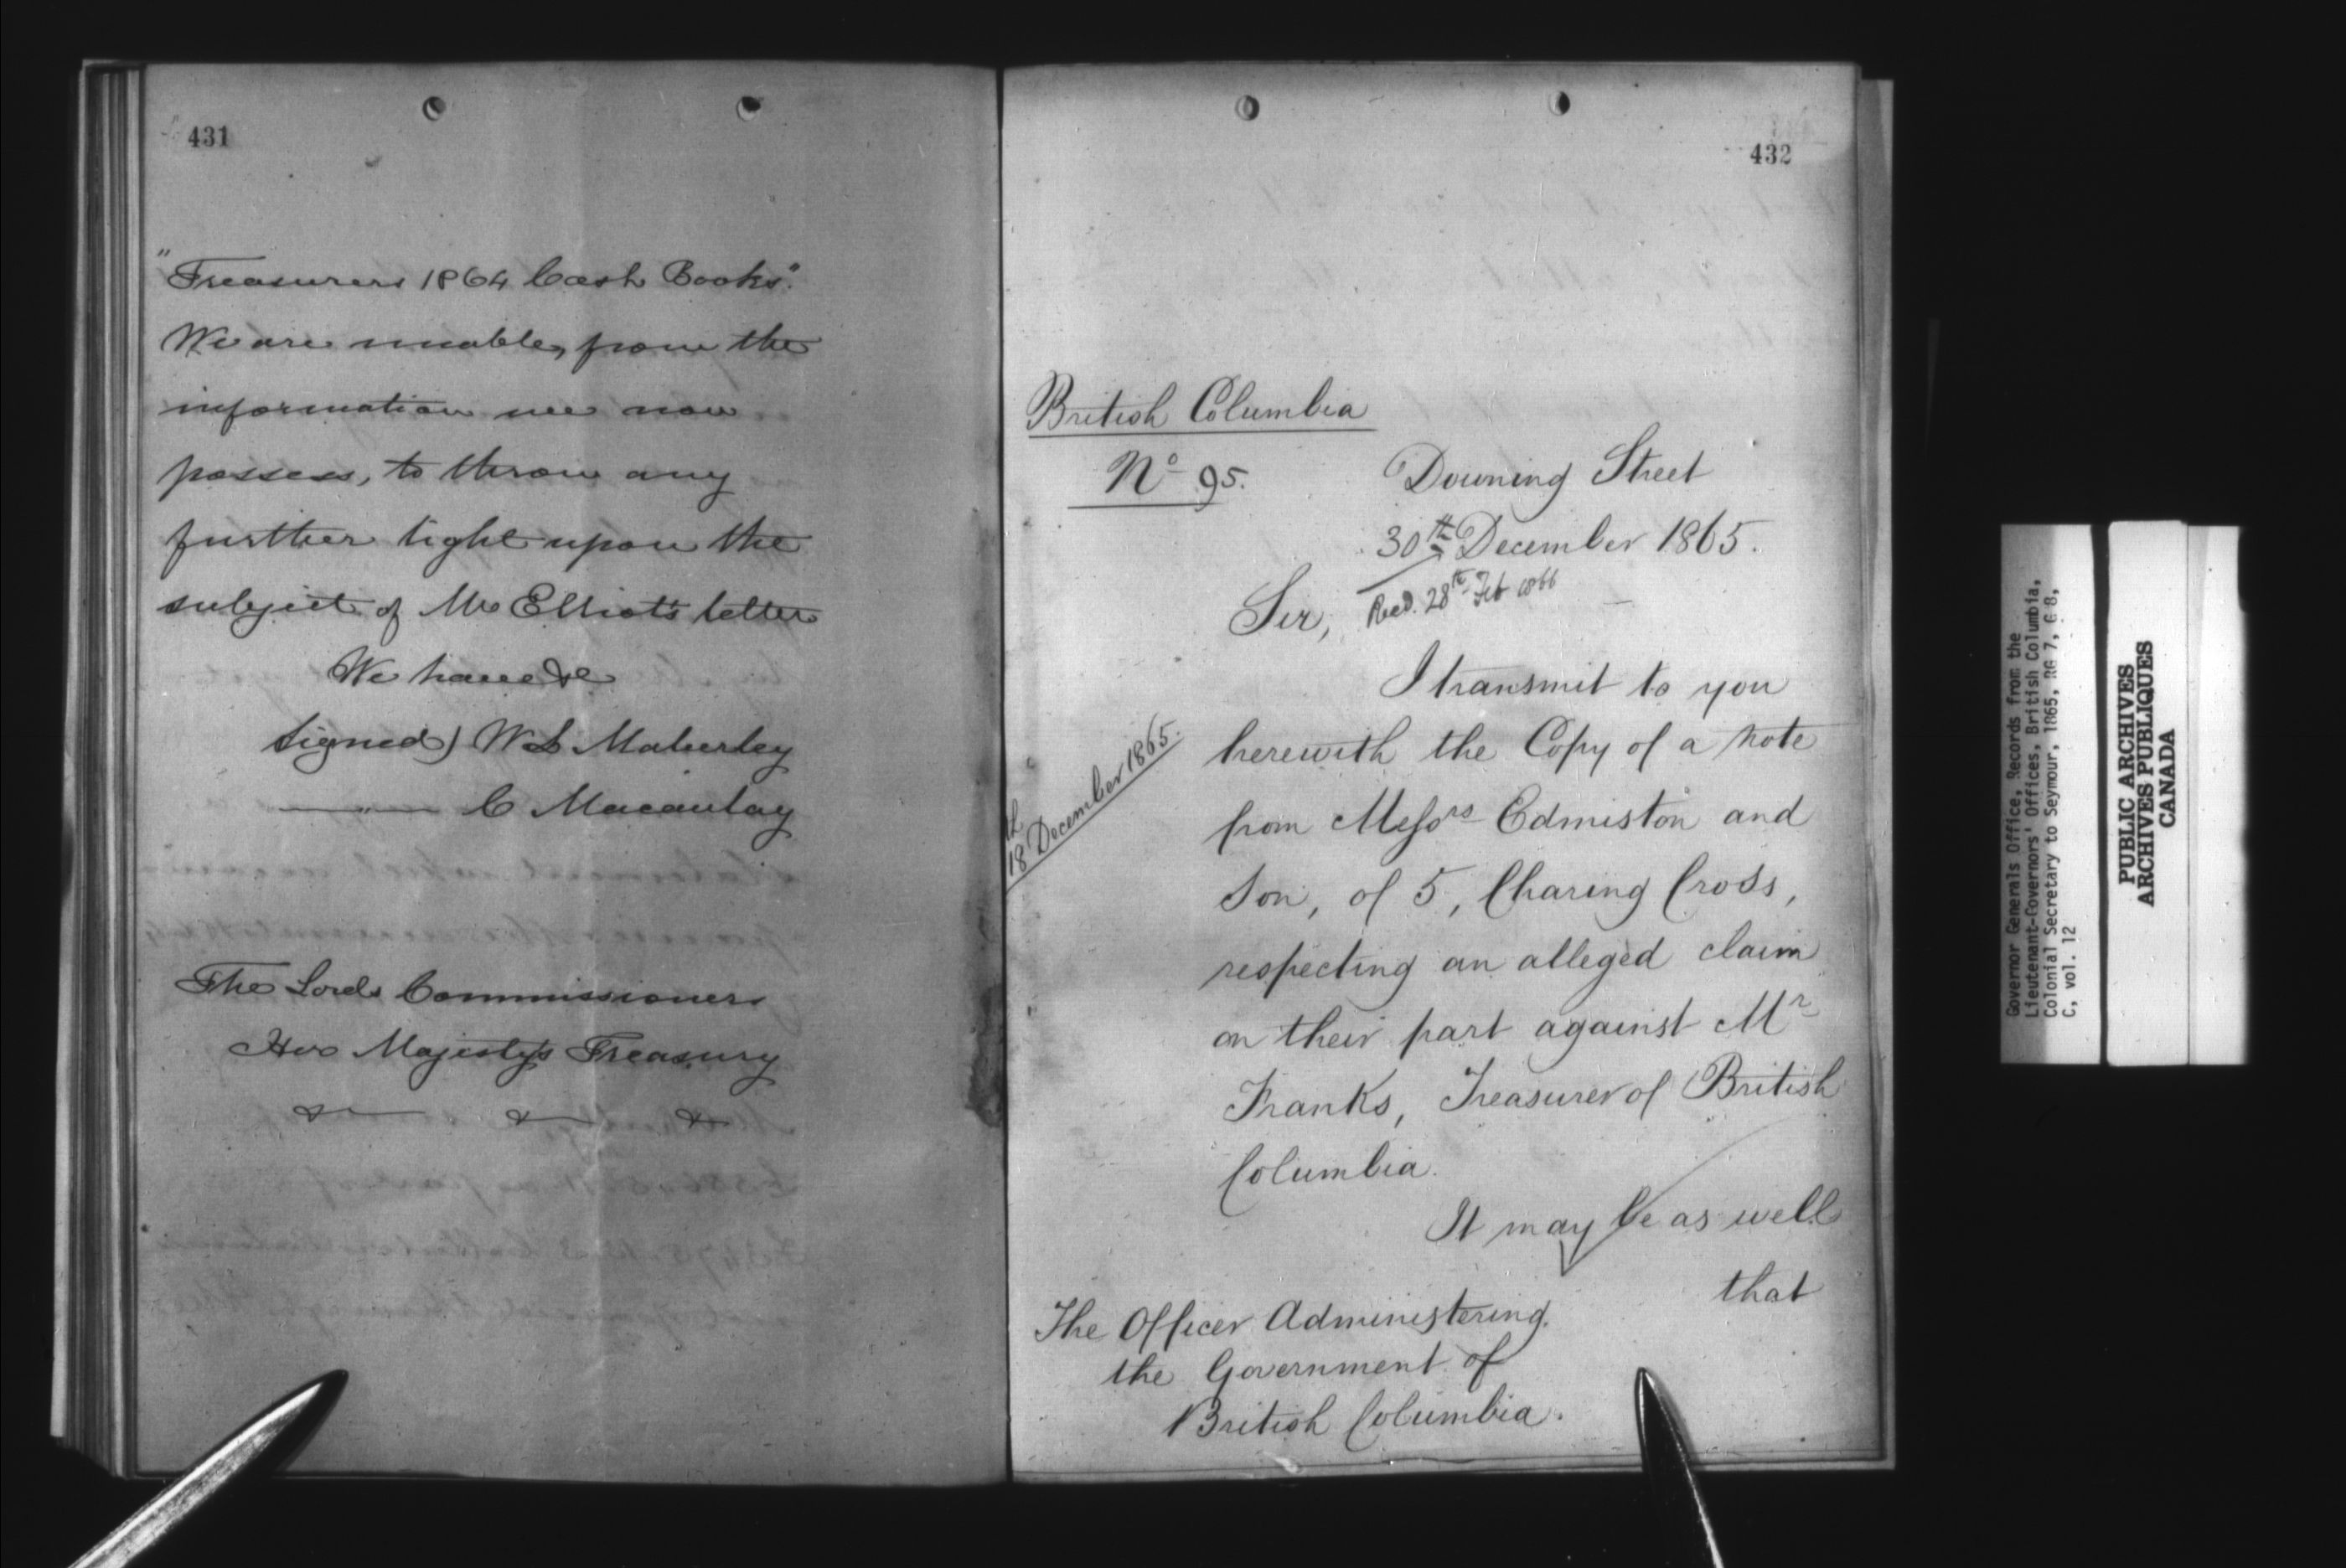 431
"Treasurers 1864 Cash Books".
We are unable, from the
information we now
possess, to throw any
further light upon the
subject of Mr Elliot's letter
We have &c
signed) W L Maberley
—"— C Macaulay
The Lords Commissioners
Her Majesty's Treasury
&— &— &—
432
British Columbia
No 95.
Downing Street
30th December 1865.
Recd. 28th Feb 1866
Sir,
I transmit to you
18th December 1865.
herewith the Copy of a note
from Messrs Edmiston and
Son, of 5, Charing Cross,
respecting an alleged claim
on their part against Mr
Franks, Treasurer of British
Columbia.
It may be as well
that
The Officer Administering
the Government of
British Columbia.
Governor Generals Office, Records from the
Lieutenant-Governors' Offices, British Columbia,
Colonial Secretary to Seymour, 1865, RG 7, G 8,
C, vol. 12
PUBLIC ARCHIVES
ARCHIVES PUBLIQUES
CANADA